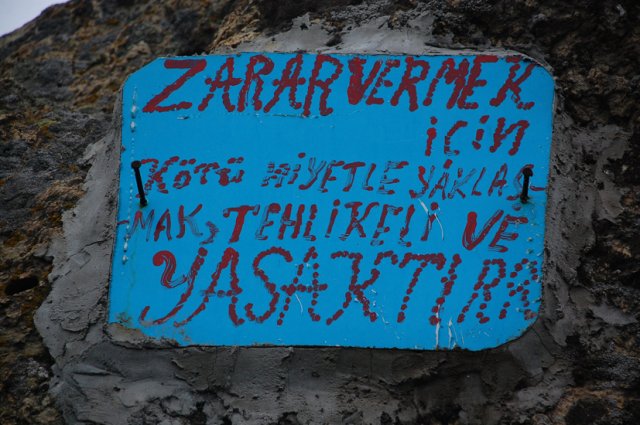 ZARAR VERMEK
için
Kötü niyetle yaklaş-
mak, TEHLİKELİ VE
YASAKTIR